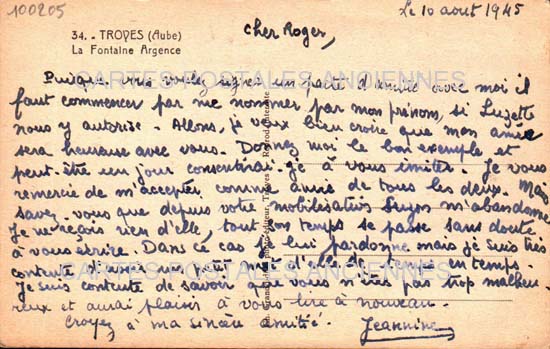 100205
Le 10 aout 1945
34. - TROYES (Aube)
La Fontaine Argence
Cher Roger,
Puisque vous voulez signer un pacte d'amitié avec moi il
faut commencer par me nommer par mon prénom, si Luzette
nous y autorise. Allons, je veux bien croire que mon amie
sera heureuse avec vous. Donnez moi le bon exemple et
peut-être un jour consentirai-je à vous imiter. Je vous
remercie de m'accepter comme amie de tous les deux. Mais
savez-vous que depuis votre mobilisation m'abandonne
Je ne reçois rien d'elle, tout son temps se passe sans doute
à vous écrire. Dans ce cas je lui pardonne mais je suis très
contente d'avoir un petit mot d'elle de temps en temps.
Je suis contente de savoir que vous n'êtes pas trop malheu-
reux et aurai plaisir à vous lire à nouveau.
Croyez à ma sincère amitié. Jeannine
CARTES POSTALES ANCIENNES
CARTES POSTALES ANCIENNES